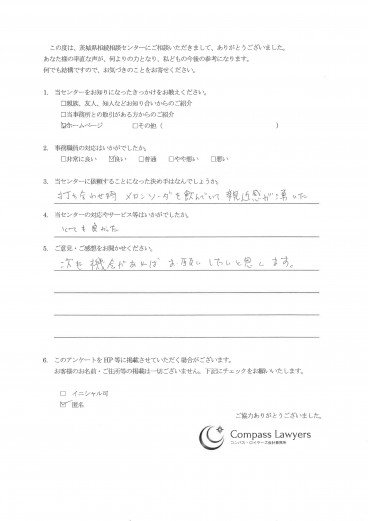 この度は、茨城県相続相談センターにご相談いただきまして、ありがとうございました。
あなた様の率直な声が、何よりの力となり、私どもの今後の参考になります。
何でも結構ですので、お気づきのことをお寄せください。
1. 当センターをお知りになったきっかけをお教えください。
□親族、友人、知人などお知り合いからのご紹介
□当事務所との取引がある方からのご紹介
☑ホームページ □その他（ ）
2. 事務職員の対応はいかがでしたか。
□非常に良い ☑良い □普通 □やや悪い □悪い
3. 当センターに依頼することになった決め手はなんでしょうか。
打ち合わせ時 メロンソーダを飲んでいて 親近感が湧いた
4. 当センターの対応やサービス等はいかがでしたか。
とても良かった
5. ご意見・ご感想をお聞かせください。
次も機会があればお願いしたいと思います。
6. このアンケートをHP等に掲載させていただく場合がございます。
お客様のお名前・ご住所等の掲載は一切ございません。下記にチェックをお願いいたします。
□ イニシャル可
☑ 匿名
ご協力ありがとうございました。
Compass Lawyers
コンパス・ロイヤーズ法律事務所